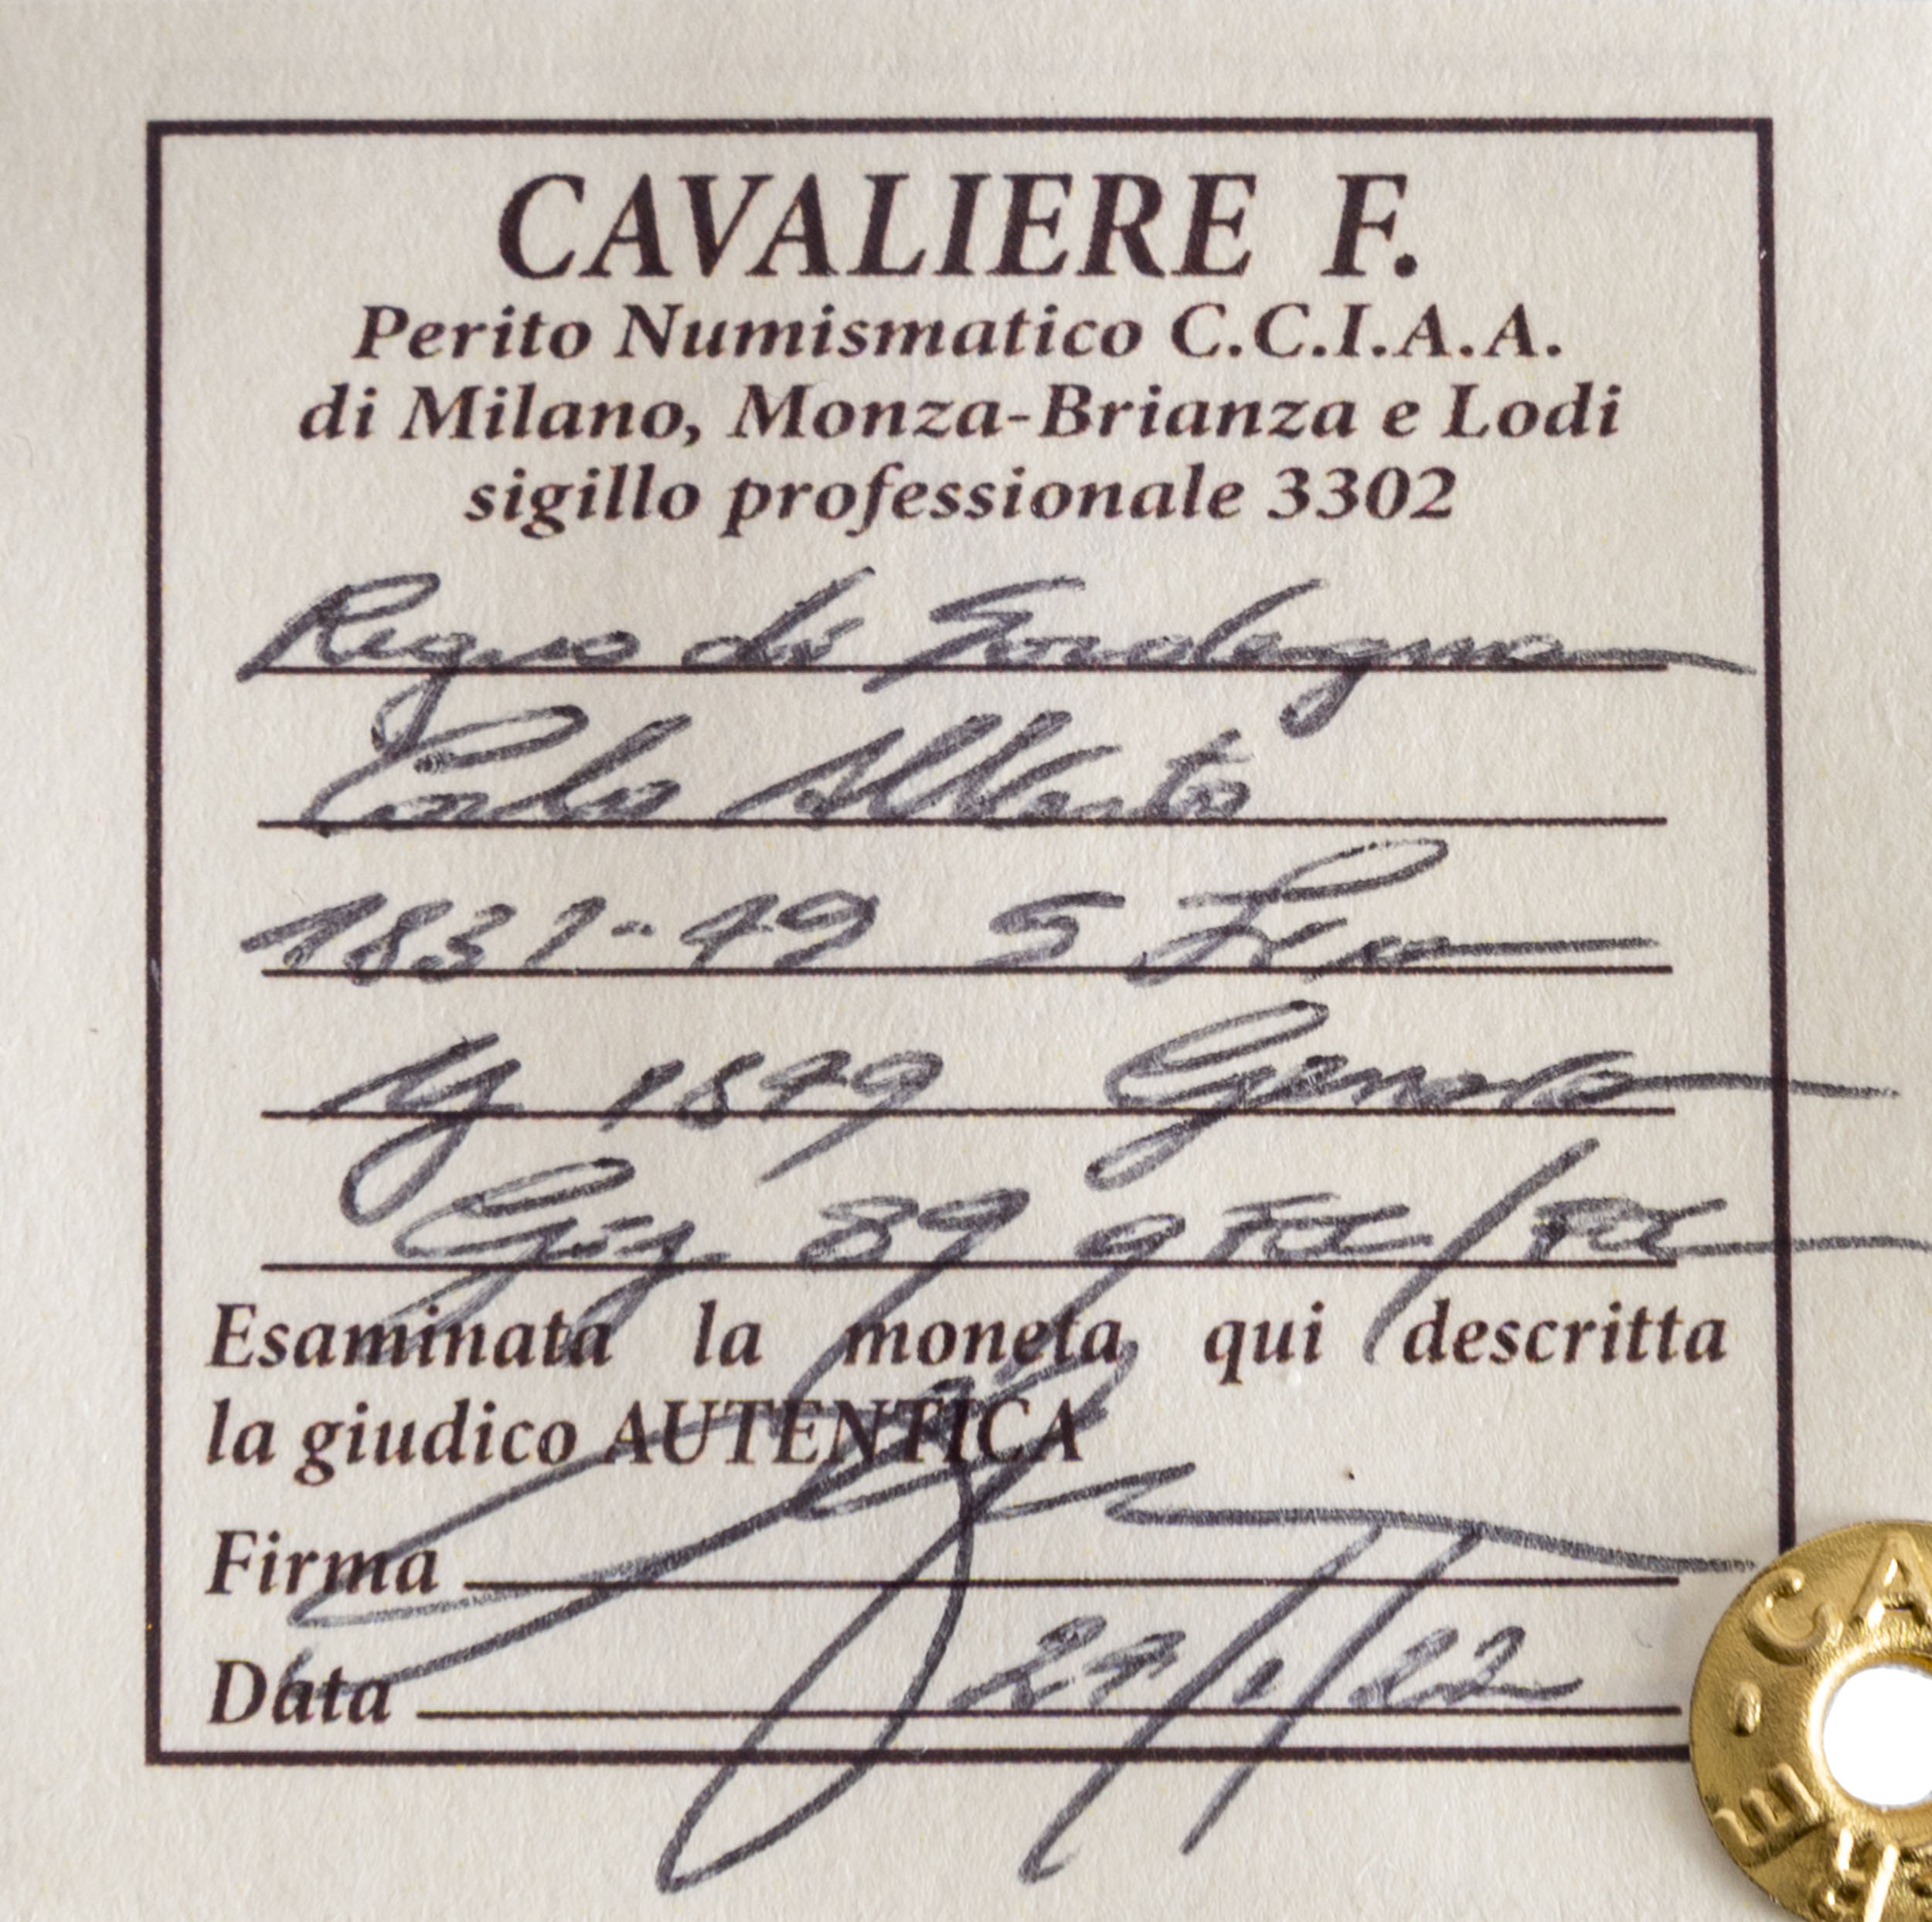 CAVALIERE F.
Perito Numismatico C.C.I.A.A.
di Milano, Monza-Brianza e Lodi
sigillo professionale 3302
Regno di Sardegna
Carlo Alberto
1831-49 5 Lire
1849 Genova
Gig. 89 q FDC/FDC
Esaminata la moneta qui descritta
la giudico AUTENTICA
Firma
Data 24/1/22
CA
RE